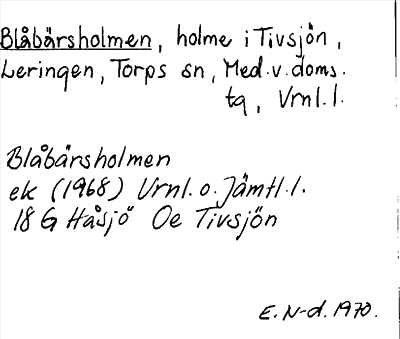 Blåbärsholmen, holme i Tivsjön,
Leringen, Torps sn, Med.v.doms.
tg, Vrnl.l.
Blåbärsholmen
ek (1968) Vrnl.o.Jämtl.l.
18 G Håsjö Oe Tivsjön
E.N-d.1970.